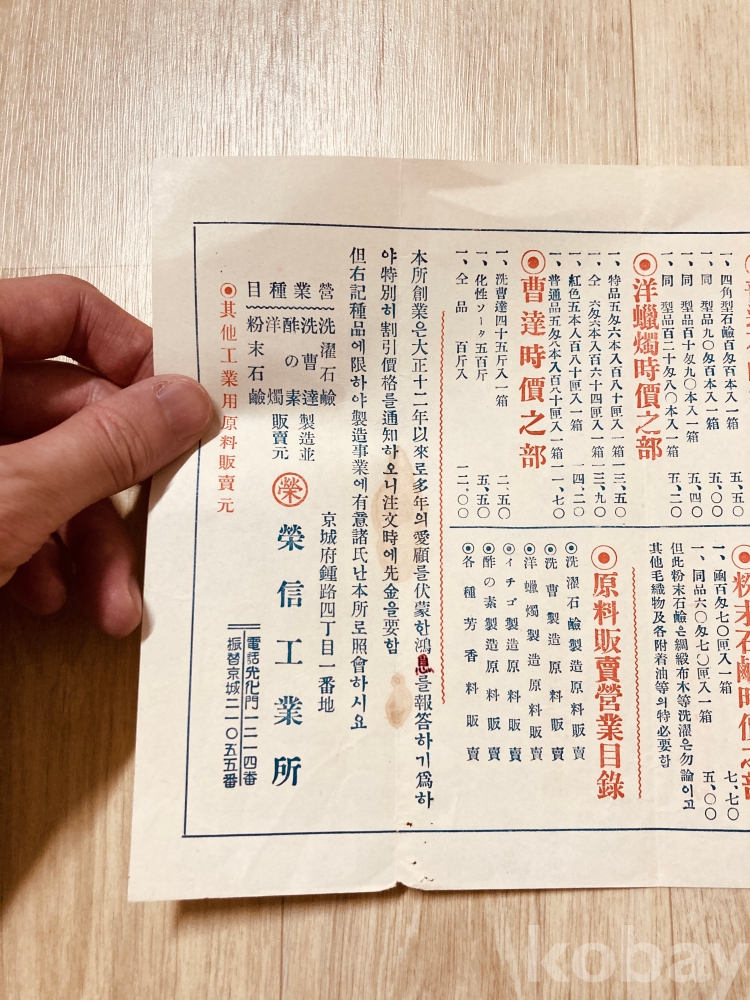 一、四角型石鹼百匁百本入一箱 五、五〇
一、同 型品九〇匁百本入一箱 五、〇〇
一、同 型品百十匁九〇本入一箱 五、四〇
一、同 型品百二十匁八〇本入一箱 五、二〇
◉洋蠟燭時價之部
一、特品五匁六本入百八十匣入一箱 一三、五〇
一、仝 六匁六本入百六十四匣入一箱 一三、九〇
一、紅色五本入百八十匣入一箱 一四、二〇
一、普通品五匁八本入百八十匣入一箱 一一、七〇
◉曹達時價之部
一、洗曹達四十五斤入一箱 二、五〇
一、化性ソーダ五百斤 五、五〇
一、仝品 百斤入 一二、〇〇
◉粉末石鹼時價之部
一、凾百匁七〇匣入一箱 七、七〇
一、同品六〇匁七〇匣入一箱 五、〇〇
但此粉末石鹼은綢緞布木等洗濯은勿論이고
其他毛織物及各附着油等의特必要함
◉原料販賣營業目錄
◉洗濯石鹼製造原料販賣
◉洗曹製造原料販賣
◉洋蠟燭製造原料販賣
◉イチゴ製造原料販賣
◉酢の素製造原料販賣
◉各種芳香料販賣
本所創業은大正十二年以來로多年의愛顧를伏蒙한鴻恩를報答하기爲하
야特別히割引價格를通知하오니注文時에先金을要함
但右記種品에限하야製造事業에有意諸氏난本所로照會하시요
營業種目
洗濯石鹼
洗曹達
酢の素
洋燭
粉末石鹼
製造並
販賣元
◉其他工業用原料販賣元
京城府鍾路四丁目一番地
榮 榮信工業所
電話光化門一二一四番
振替京城二一〇五五番
kobay